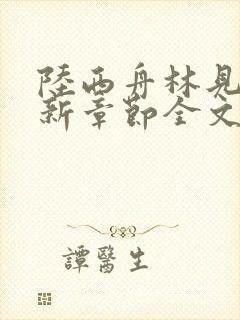 陸西舟林見
新章節全文
譚醫生